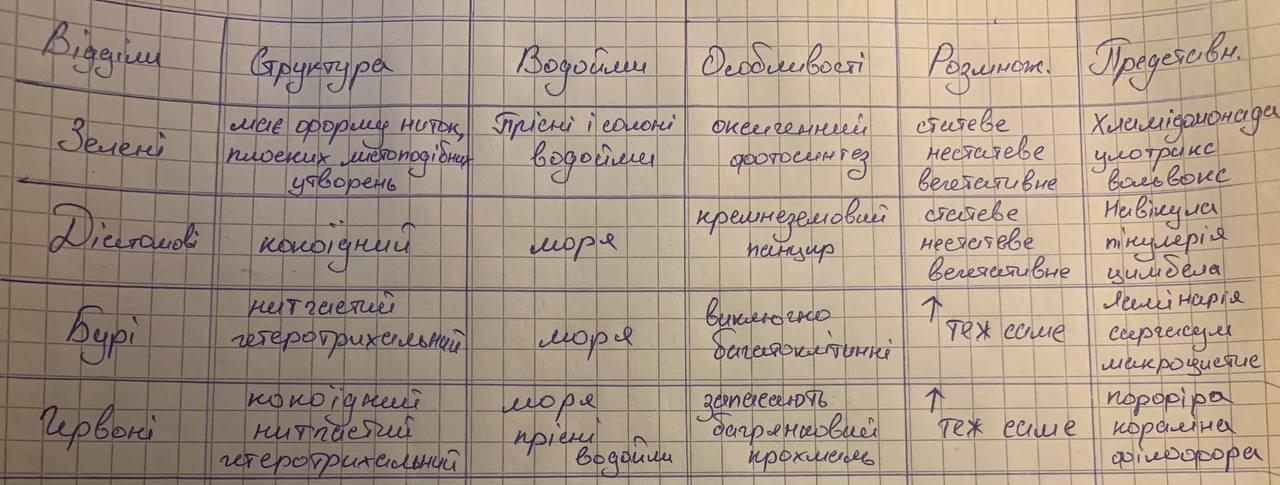 Відділи
Структура
Водойми
Особливості
Розмнож.
Представн.
Зелені
має форму ниток,
плоских листоподібних
утворень
Прісні і солоні
водойми
оксигенний
фотосинтез
статеве
нестатеве
вегетативне
Хламідомонада
улотрикс
вольвокс
Діатомові
кокоїдний
моря
кремнеземовий
панцир
статеве
нестатеве
вегетативне
Навікула
пінулерія
цимбела
Бурі
нитчастий
гетеротрихальний
моря
виключно
багатоклітинні
↑
теж саме
Ламінарія
саргасум
макроцистис
Червоні
кокоїдний
нитчастий
гетеротрихальний
моря
прісні
водойми
запасають
багрянковий
крохмаль
↑
теж саме
порфіра
кораліна
філофора